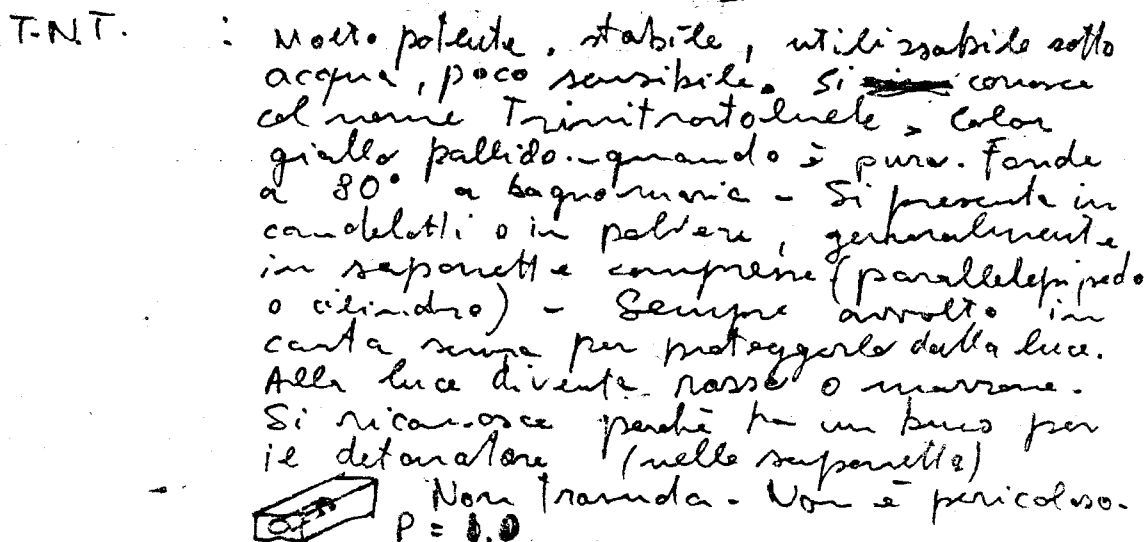 T.N.T. : Molto potente, stabile, utilizzabile sotto
acqua, poco sensibile. Si conosce
col nome Trinitrotoluele, Color
giallo pallido - quando è puro. Fonde
a 80° a bagnomaria - Si presenta in
candelotti o in polvere, generalmente
in saponette compresse (parallelepipedo
o cilindro) - Sempre avvolto in
carta scura per proteggerlo dalla luce.
Alla luce diventa rosso o marrone.
Si riconosce perché ha un buco per
il detonatore (nelle saponette)
Non trasuda - Non è pericoloso.
P =